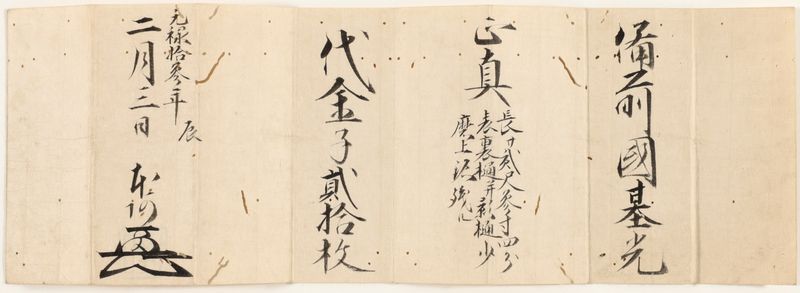 備前國基光
正真
長サ貳尺參寸四分
表裏樋并新樋少
磨上
代金子貳拾枚
元禄拾參年
辰
二月三日
本阿